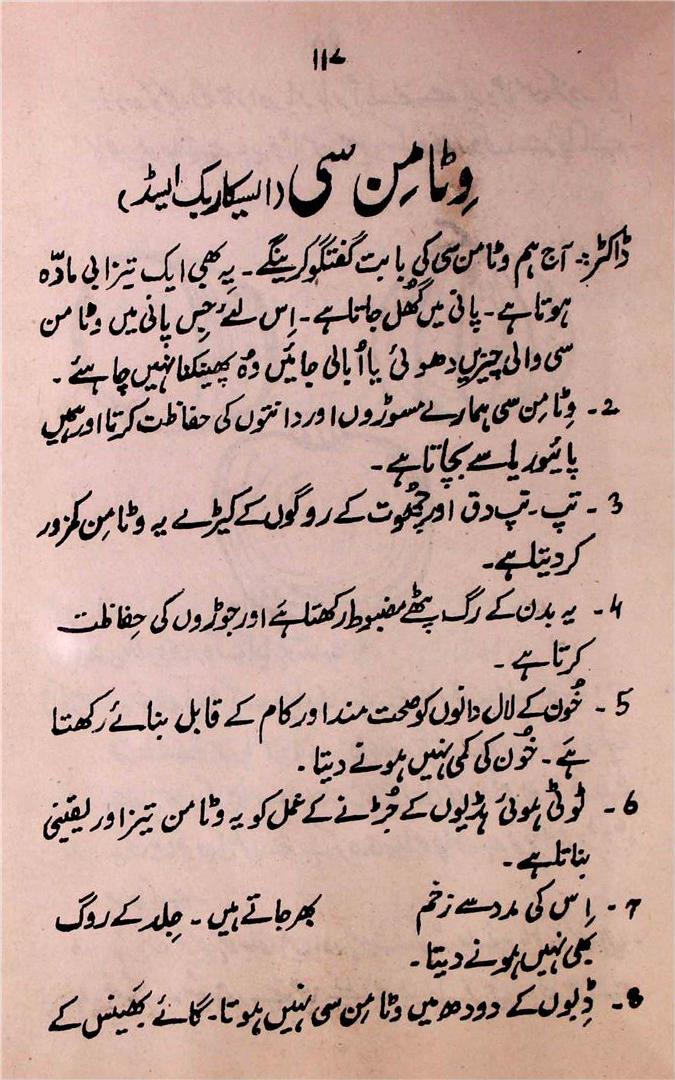 ۱۱۷
وِٹامِن سی (ایسکاربک ایسڈ)
ڈاکٹر:۔ آج ہم وٹامن سی کی بابت گفتگو کرینگے۔ یہ بھی ایک تیزابی مادّہ
ہوتا ہے۔ پانی میں گھُل جاتا ہے۔ اِس لئے جِس پانی میں وٹامن
سی والی چیزیں دھوئی یا اُبالی جائیں وُہ پھینکنا نہیں چاہئے۔
2۔ وِٹامِن سی ہمارے مسوڑوں اور دانتوں کی حفاظت کرتا اور ہمیں
پائیوریا سے بچاتا ہے۔
3۔ تپ۔ تپ دق اور چھُوت کے روگوں کے کیڑے یہ وٹامِن کمزور
کر دیتا ہے۔
4۔ یہ بدن کے رگ پٹھے مضبوط رکھتا ہے اور جوڑوں کی حِفاظت
کرتا ہے۔
5۔ خُون کے لال دانوں کو صحت مند اور کام کے قابل بنائے رکھتا
ہَے۔ خُون کی کمی نہیں ہونے دیتا۔
6۔ ٹوٹی ہوئی ہڈیوں کے جُڑنے کے عمل کو یہ وٹامن تیز اور یقینی
بناتا ہے۔
7۔ اِس کی مدد سے زخم بھر جاتے ہیں۔ جِلد کے روگ
بھی نہیں ہونے دیتا۔
8۔ ڈِبوں کے دودھ میں وٹامِن سی نہیں ہوتا۔ گائے بھَینس کے